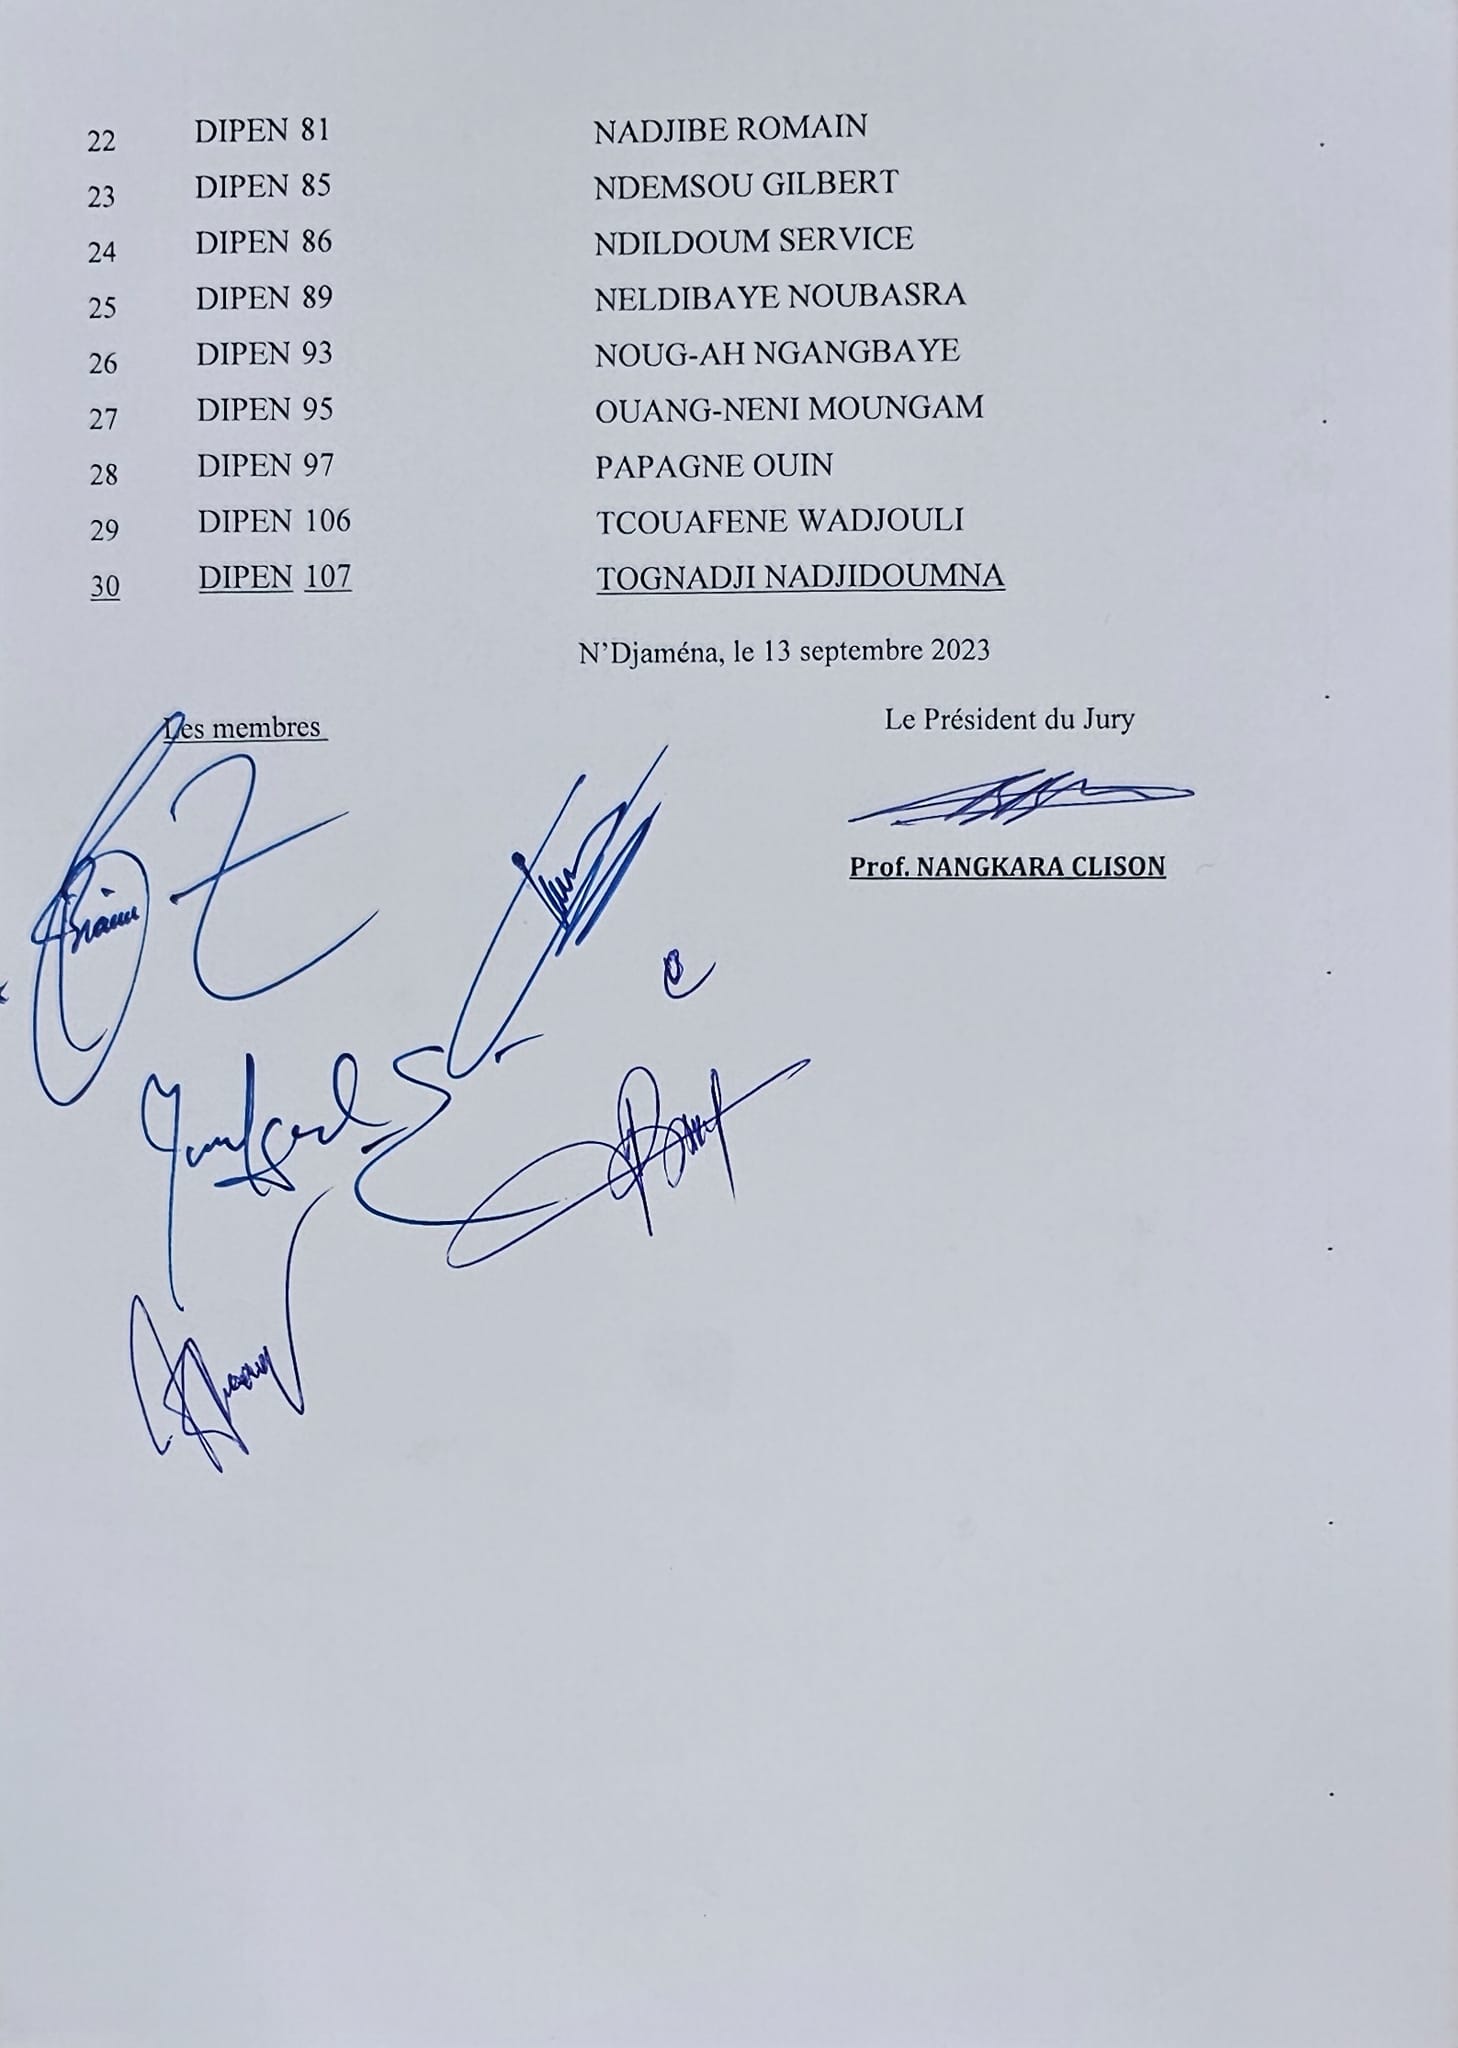 22 DIPEN 81 NADJIBE ROMAIN
23 DIPEN 85 NDEMSOU GILBERT
24 DIPEN 86 NDILDOUM SERVICE
25 DIPEN 89 NELDIBAYE NOUBASRA
26 DIPEN 93 NOUG-AH NGANGBAYE
27 DIPEN 95 OUANG-NENI MOUNGAM
28 DIPEN 97 PAPAGNE OUIN
29 DIPEN 106 TCOUAFENE WADJOULI
30 DIPEN 107 TOGNADJI NADJIDOUMNA
N’Djaména, le 13 septembre 2023
Les membres Le Président du Jury
Prof. NANGKARA CLISON